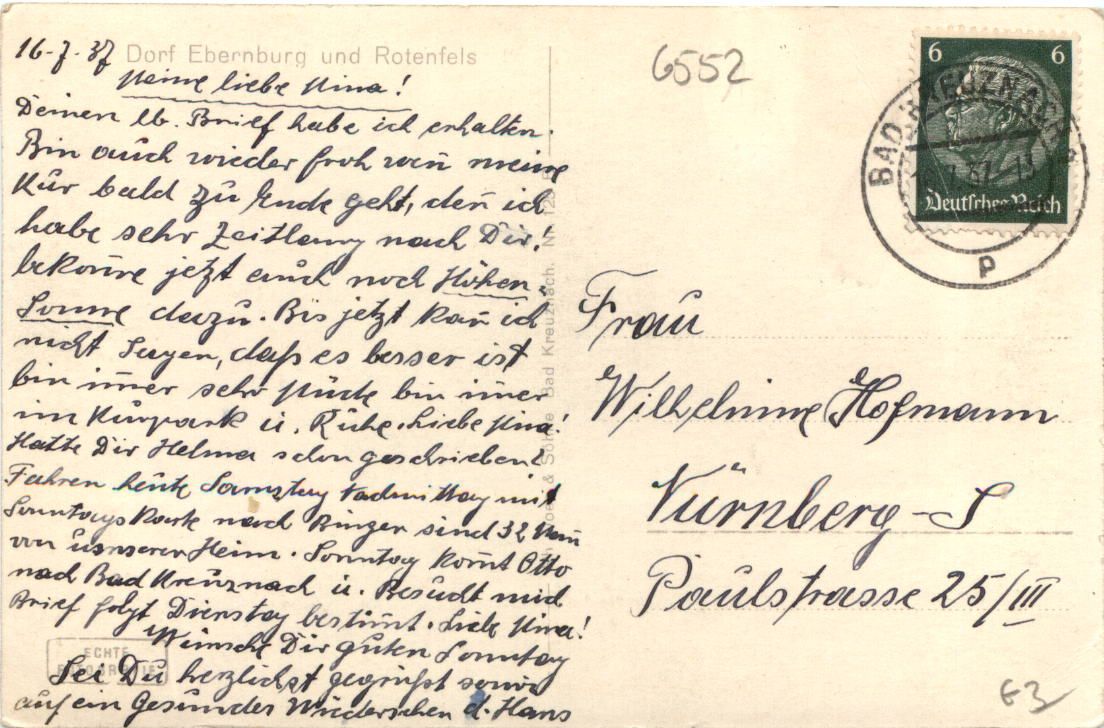 16-7-37 Dorf Ebernburg und Rotenfels
Meine liebe Mina!
Deinen lb. Brief habe ich erhalten.
Bin auch wieder froh wen̄ meine
Kur bald zu Ende geht, den̄ ich
habe sehr Zeitlang nach Dir!
bekom̄e jetzt auch noch Höhen-
Sonne dazu. Bis jetzt kan̄ ich
nicht sagen, daß es besser ist
bin im̄er sehr Müde bin im̄er
im Kurpark u. Ruhe. Liebe Mina!
Hatte Dir Helma schon geschrieben?
Fahren heute Samstag Nachmittag mit
Sonntagskarte nach Bingen sind 32
von unserer Heim. Sonntag kom̄t Otto
nach Bad Kreuznach u. Besucht mich
Brief folgt Dienstag bestim̄t. Liebe Mina!
Wünsche Dir guten Sonntag
Sei Du herzlichst gegrüßt sowie
auf ein Gesundes Wiedersehen d. Hans
ECHTE
& Söhne Bad Kreuznach. N
6552
6 6
Deutsches Reich
BAD KREUZNACH
P
Frau
Wilhelmine Hofmann
Nürnberg-S
Paulstrasse 25/III